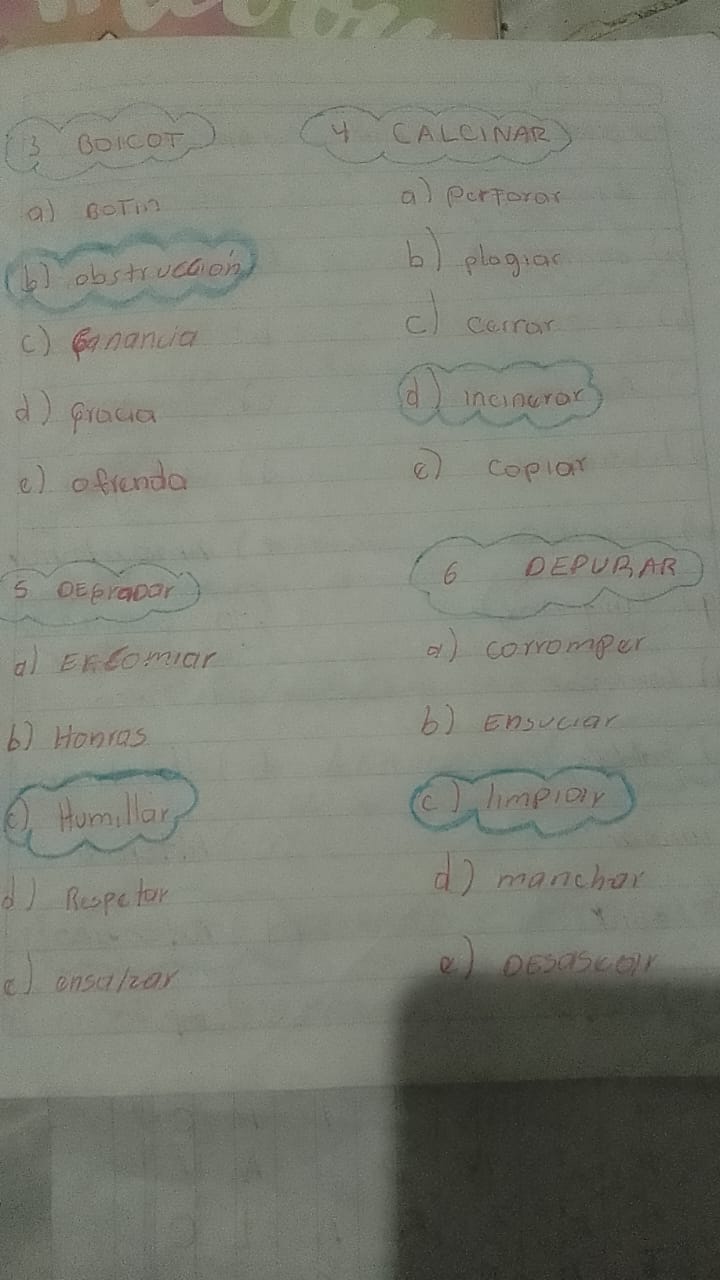 3 BOICOT
a) BOTin
b) obstrucción
c) Ganancia
d) gracia
e) ofrenda
4 CALCINAR
a) perforar
b) plagiar
c) cerrar
d) incinerar
e) copiar
5 DEgraDar
a) Encomiar
b) Honras
c) Humillar
d) Respetar
e) ensalzar
6 DEPURAR
a) corromper
b) Ensuciar
c) limpiar
d) manchar
e) DEsasear